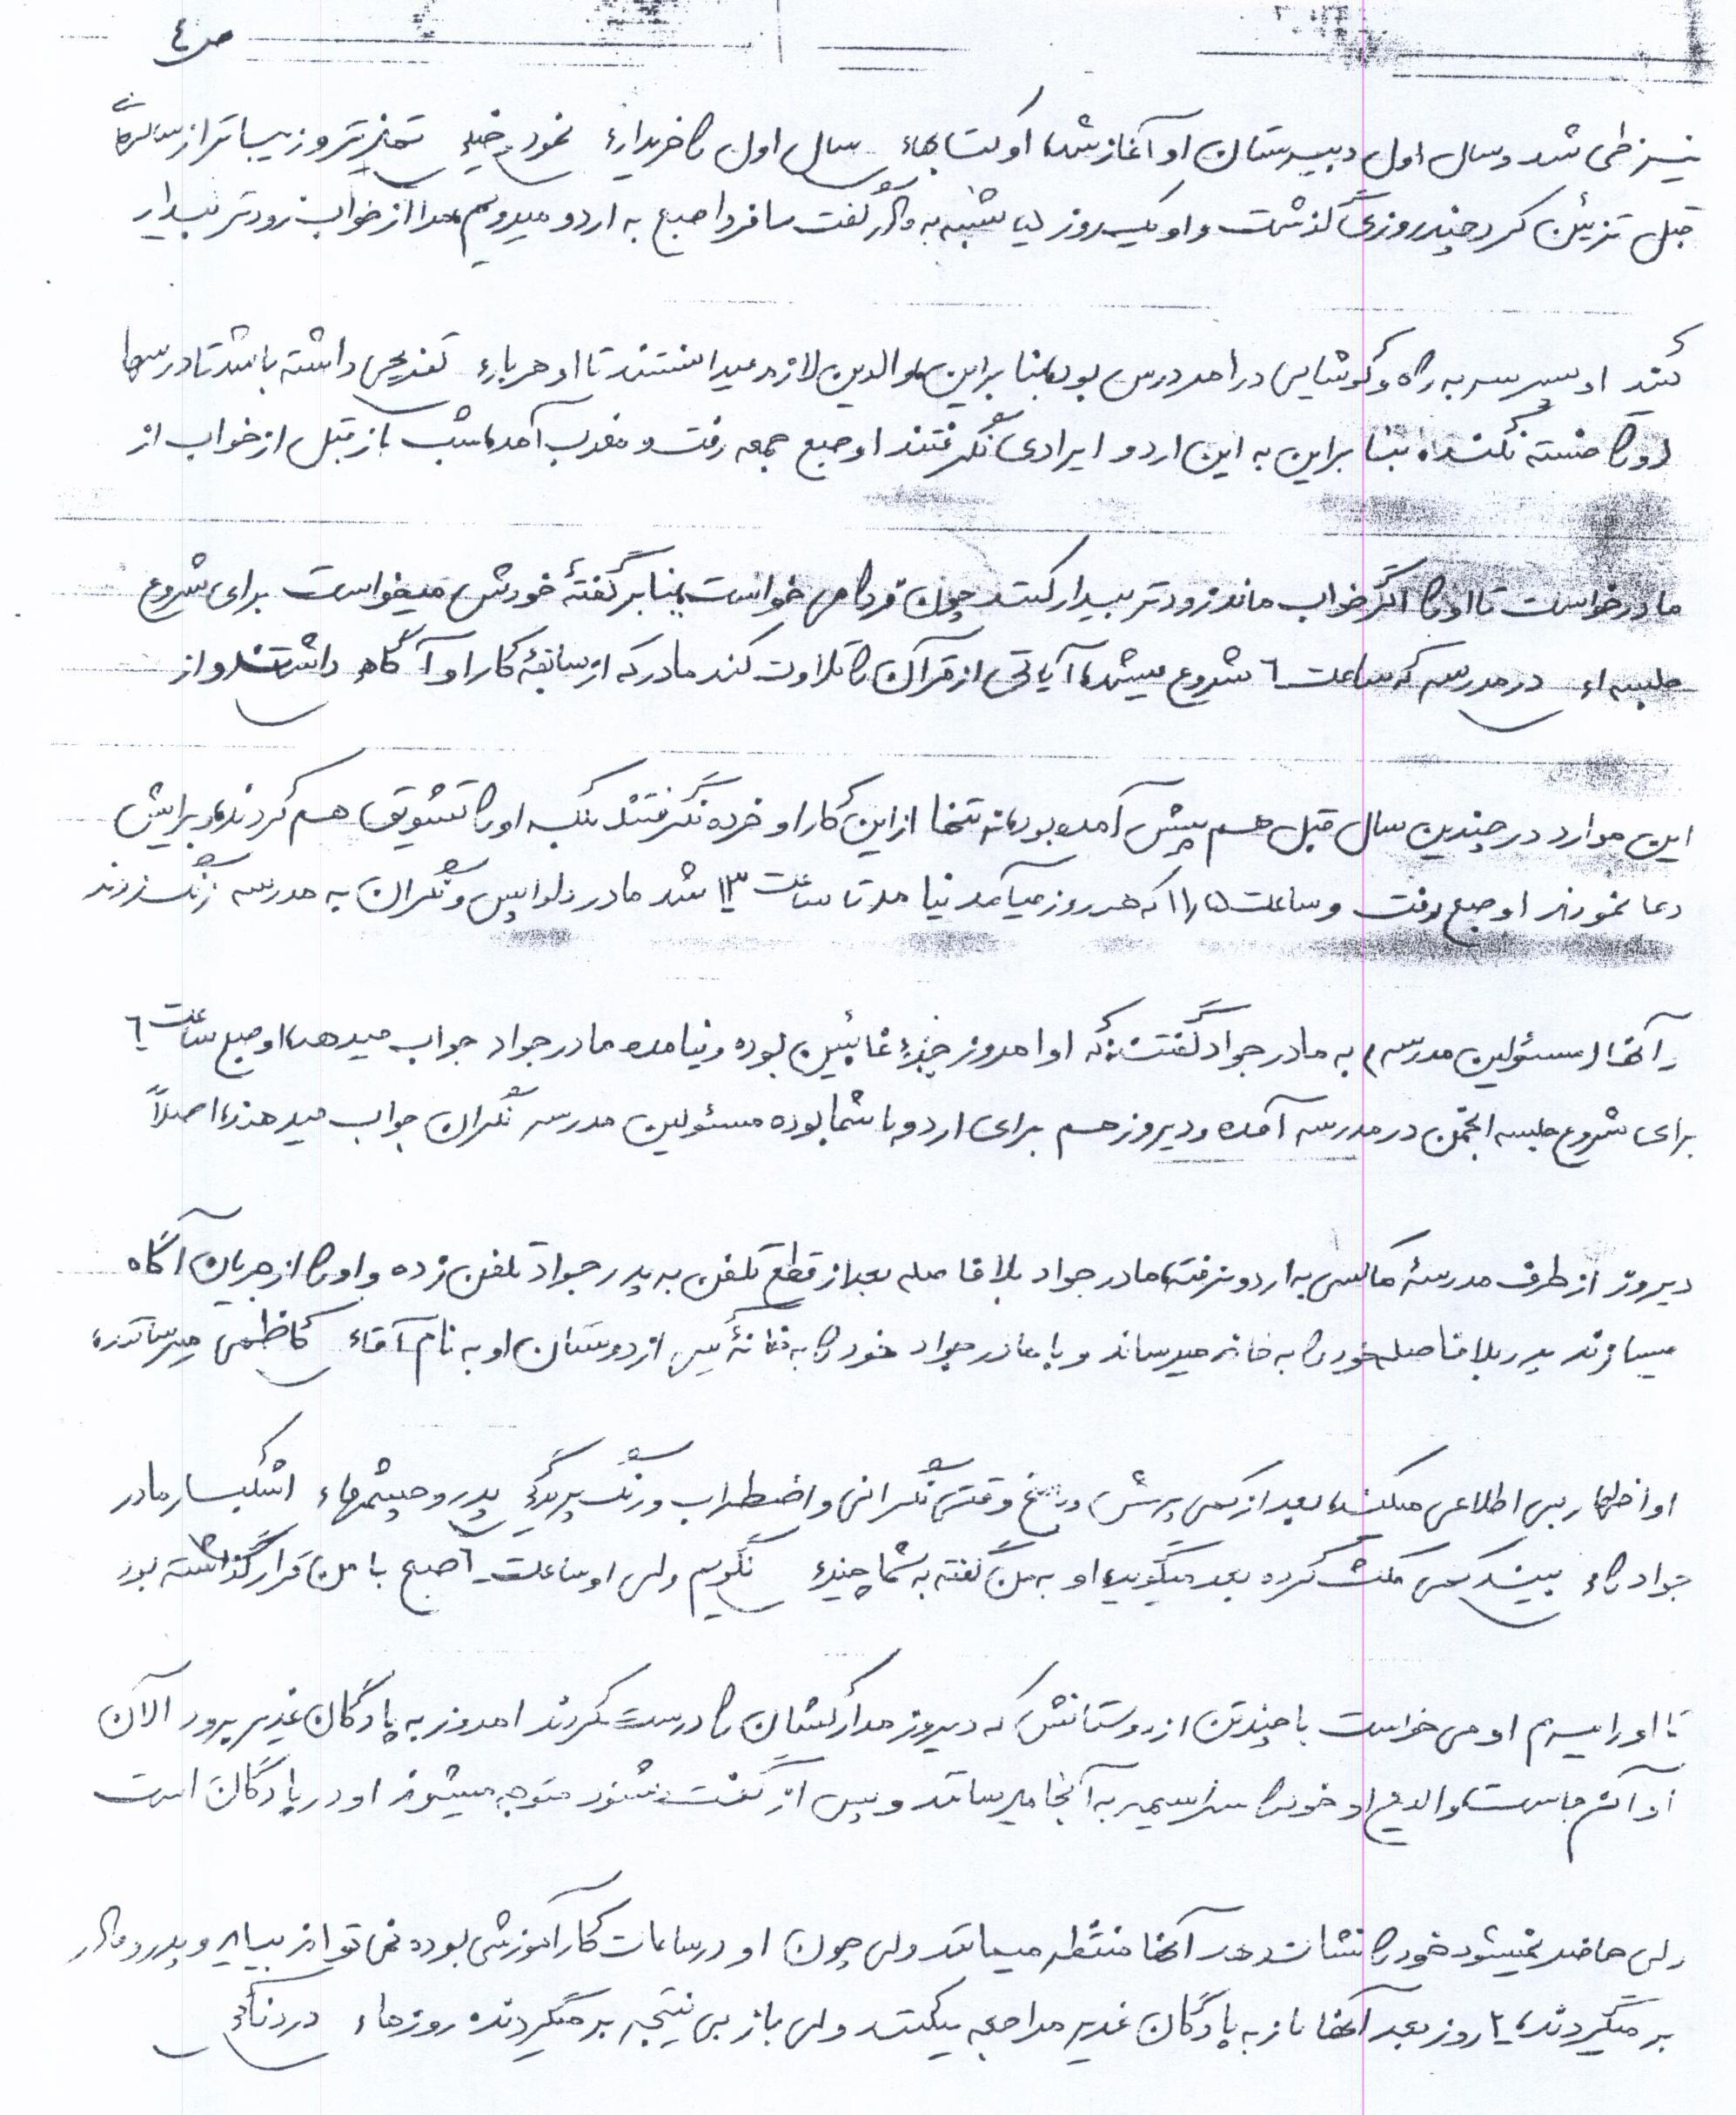 ص ٤
نیز طی شد و سال اول دبیرستان او آغاز شد، او کتابهای سال اول را خریداری نمود و خیلی تمیزتر و زیباتر از سالهای
قبل تزئین کرد چند روزی گذشت و او یک روز شنبه به مادر گفت ما فردا صبح به اردو میرویم مرا از خواب زودتر بیدار
کنید او پسر سر به راه و کوشایی در امر درس بود بنا براین والدین لازم میدانستند تا او هر باری تفریحی داشته باشد تا درسها
او را خسته نکند، بنا براین به این اردو ایرادی نگرفتند او صبح جمعه رفت و مغرب آمد، شب باز قبل از خواب از
مادر خواست تا او را اگر خواب ماند زودتر بیدار کند چون فردا می خواست بنا بر گفتهٔ خودش میخواست برای شروع
جلسه ای در مدرسه که ساعت ٦ شروع میشد، آیاتی از قرآن را تلاوت کند مادر که از سابقهٔ کار او آگاهی داشت و از
این موارد در چندین سال قبل هم پیش آمده بود، نه تنها از این کار او خرده نگرفتند بلکه او را تشویق هم کردند و برایش
دعا نمودند او صبح رفت و ساعت ۱۱/۵ که هر روز میآمد نیامد تا ساعت ۱۳ شد مادر دلواپس و نگران به مدرسه زنگ زدند
آنها (مسئولین مدرسه) به مادر جواد گفتند که او امروز جزء غائبین بوده و نیامده مادر جواد جواب میدهد، او صبح ساعت ٦
برای شروع جلسه انجمن در مدرسه آمده و دیروز هم برای اردو با شما بوده مسئولین مدرسه نگران جواب میدهند، اصلاً
دیروز از طرف مدرسهٔ ما کسی به اردو نرفته، مادر جواد بلافاصله بعد از قطع تلفن به پدر جواد تلفن زده و او را از جریان آگاه
میسازند پدر بلافاصله خود را به خانه میرساند و با مادر جواد خود را به خانهٔ یکی از دوستان او به نام آقای کاظمی میرسانند،
او اظهار بی اطلاعی میکند، بعد از کمی پرسش و پاسخ وقتی نگرانی و اضطراب و رنگ پریدگی پدر و چشمهای اشکبار مادر
جواد را می بیند کمی مکث کرده بعد میگوید، او به من گفته به شما چیزی نگویم ولی او ساعت ٦ صبح با من قرار گذاشته بود
تا او را ببرم او می خواست با چند تن از دوستانش که دیروز مدارکشان را درست کردند امروز به پادگان غدیر برود الان
او آنجاست، والدین او خود را سراسیمه به آنجا میرسانند و پس از گفت و شنود متوجه میشوند او در پادگان است
ولی حاضر نمیشود خود را نشان دهد آنها منتظر میمانند ولی چون او در ساعات کارآموزشی بوده نمی تواند بیاید و پدر و مادر
بر میگردند، ۲ روز بعد آنها باز به پادگان غدیر مراجعه میکنند ولی باز بی نتیجه بر میگردند، روزهای دردناکی